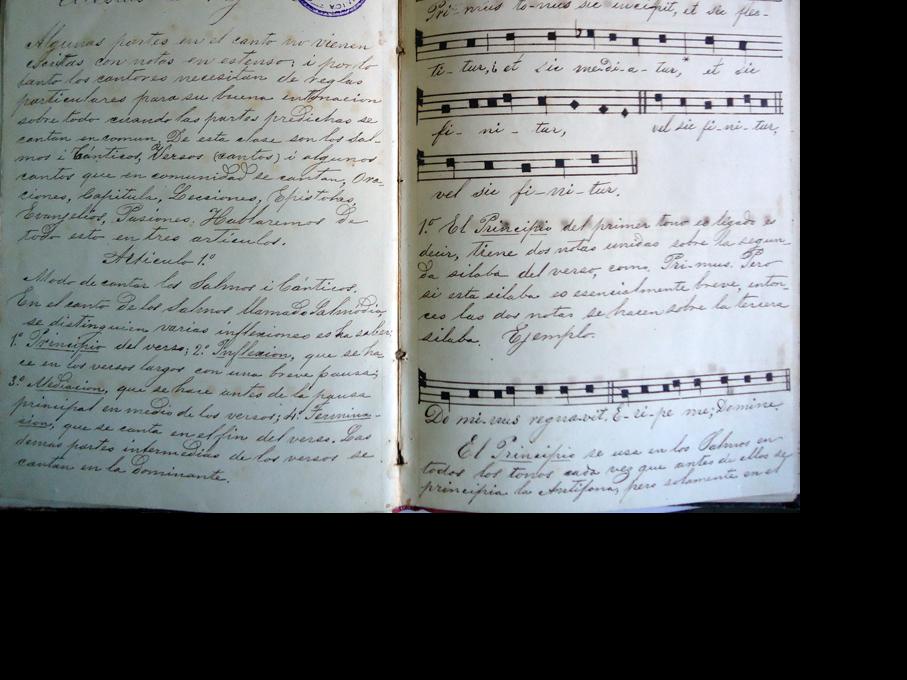 Algunas partes en el canto no vienen
escritas con notas en estenso; i por lo
tanto los cantores necesitan de reglas
particulares para su buena entonacion
sobre todo cuando las partes predichas se
cantan en comun. De esta clase son los Sal-
mos i Cánticos, Versos (cantos) i algunos
cantos que en comunidad se cantan, Ora-
ciones, Capitula, Lecciones, Epistolas,
Evangelios, Pasiones. Hablaremos de
todo esto en tres articulos.
Articulo 1.º
Modo de cantar los Salmos i Cánticos.
En el canto de los Salmos llamado Salmodia,
se distinguen varias inflexiones es ha saber:
1.º Principio del verso; 2.º Inflexion, que se ha-
ce en los versos largos con una breve pausa;
3.º Mediacion, que se hace antes de la pausa
principal en medio de los versos; 4.º Termina-
cion, que se canta en el fin del verso. Las
demas partes intermedias de los versos se
cantan en la Dominante.
Pri-mus to-nus sic incipit, et sic flec-
ti-tur, et sic me-di-a-tur,* et sic
fi-ni-tur, vel sic fi-ni-tur,
vel sic fi-ni-tur.
1.º El Principio del primer tono es legado es
decir, tiene dos notas unidas sobre la segun-
da silaba del verso, como. Pri-mus. Pero
si esta silaba es esencialmente breve, enton-
ces las dos notas se hacen sobre la tercera
silaba. Ejemplo.
Do mi-nus regna-vit. E-ri-pe me, Domine.
El Principio se usa en los Salmos en
todos los tonos cada vez que antes de ellos se
principia la Antifona, pero solamente en el